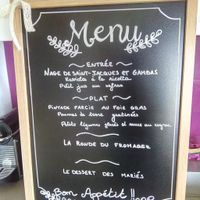 Menu
ENTRÉE
NAGE DE SAINT-JACQUES ET GAMBAS
à la ricotta
Petit jus au safran
PLAT
PINTADE FARCIE AU FOIE GRAS
Pommes de terre gratinées
Petits légumes glacés et
LA RONDE DU FROMAGER
LE DESSERT DES MARIÉS
Bon Appétit !!